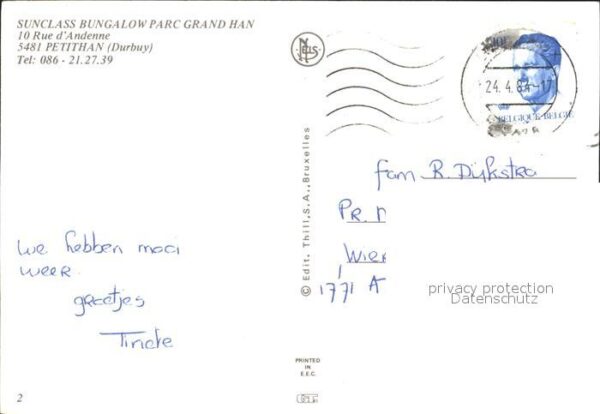 SUNCLASS BUNGALOW PARC GRAND HAN
10 Rue d'Andenne
5481 PETITHAN (Durbuy)
Tel: 086 - 21.27.39
NELS
24. 4. 84-17
BELGIQUE-BELGIË
© Edit. Thill, S.A., Bruxelles
fam R. Dijkstra
PR.
Wier
1771 A
we hebben mooi
weer.
groetjes
Tineke
privacy protection
Datenschutz
PRINTED
IN
E.E.C.
2